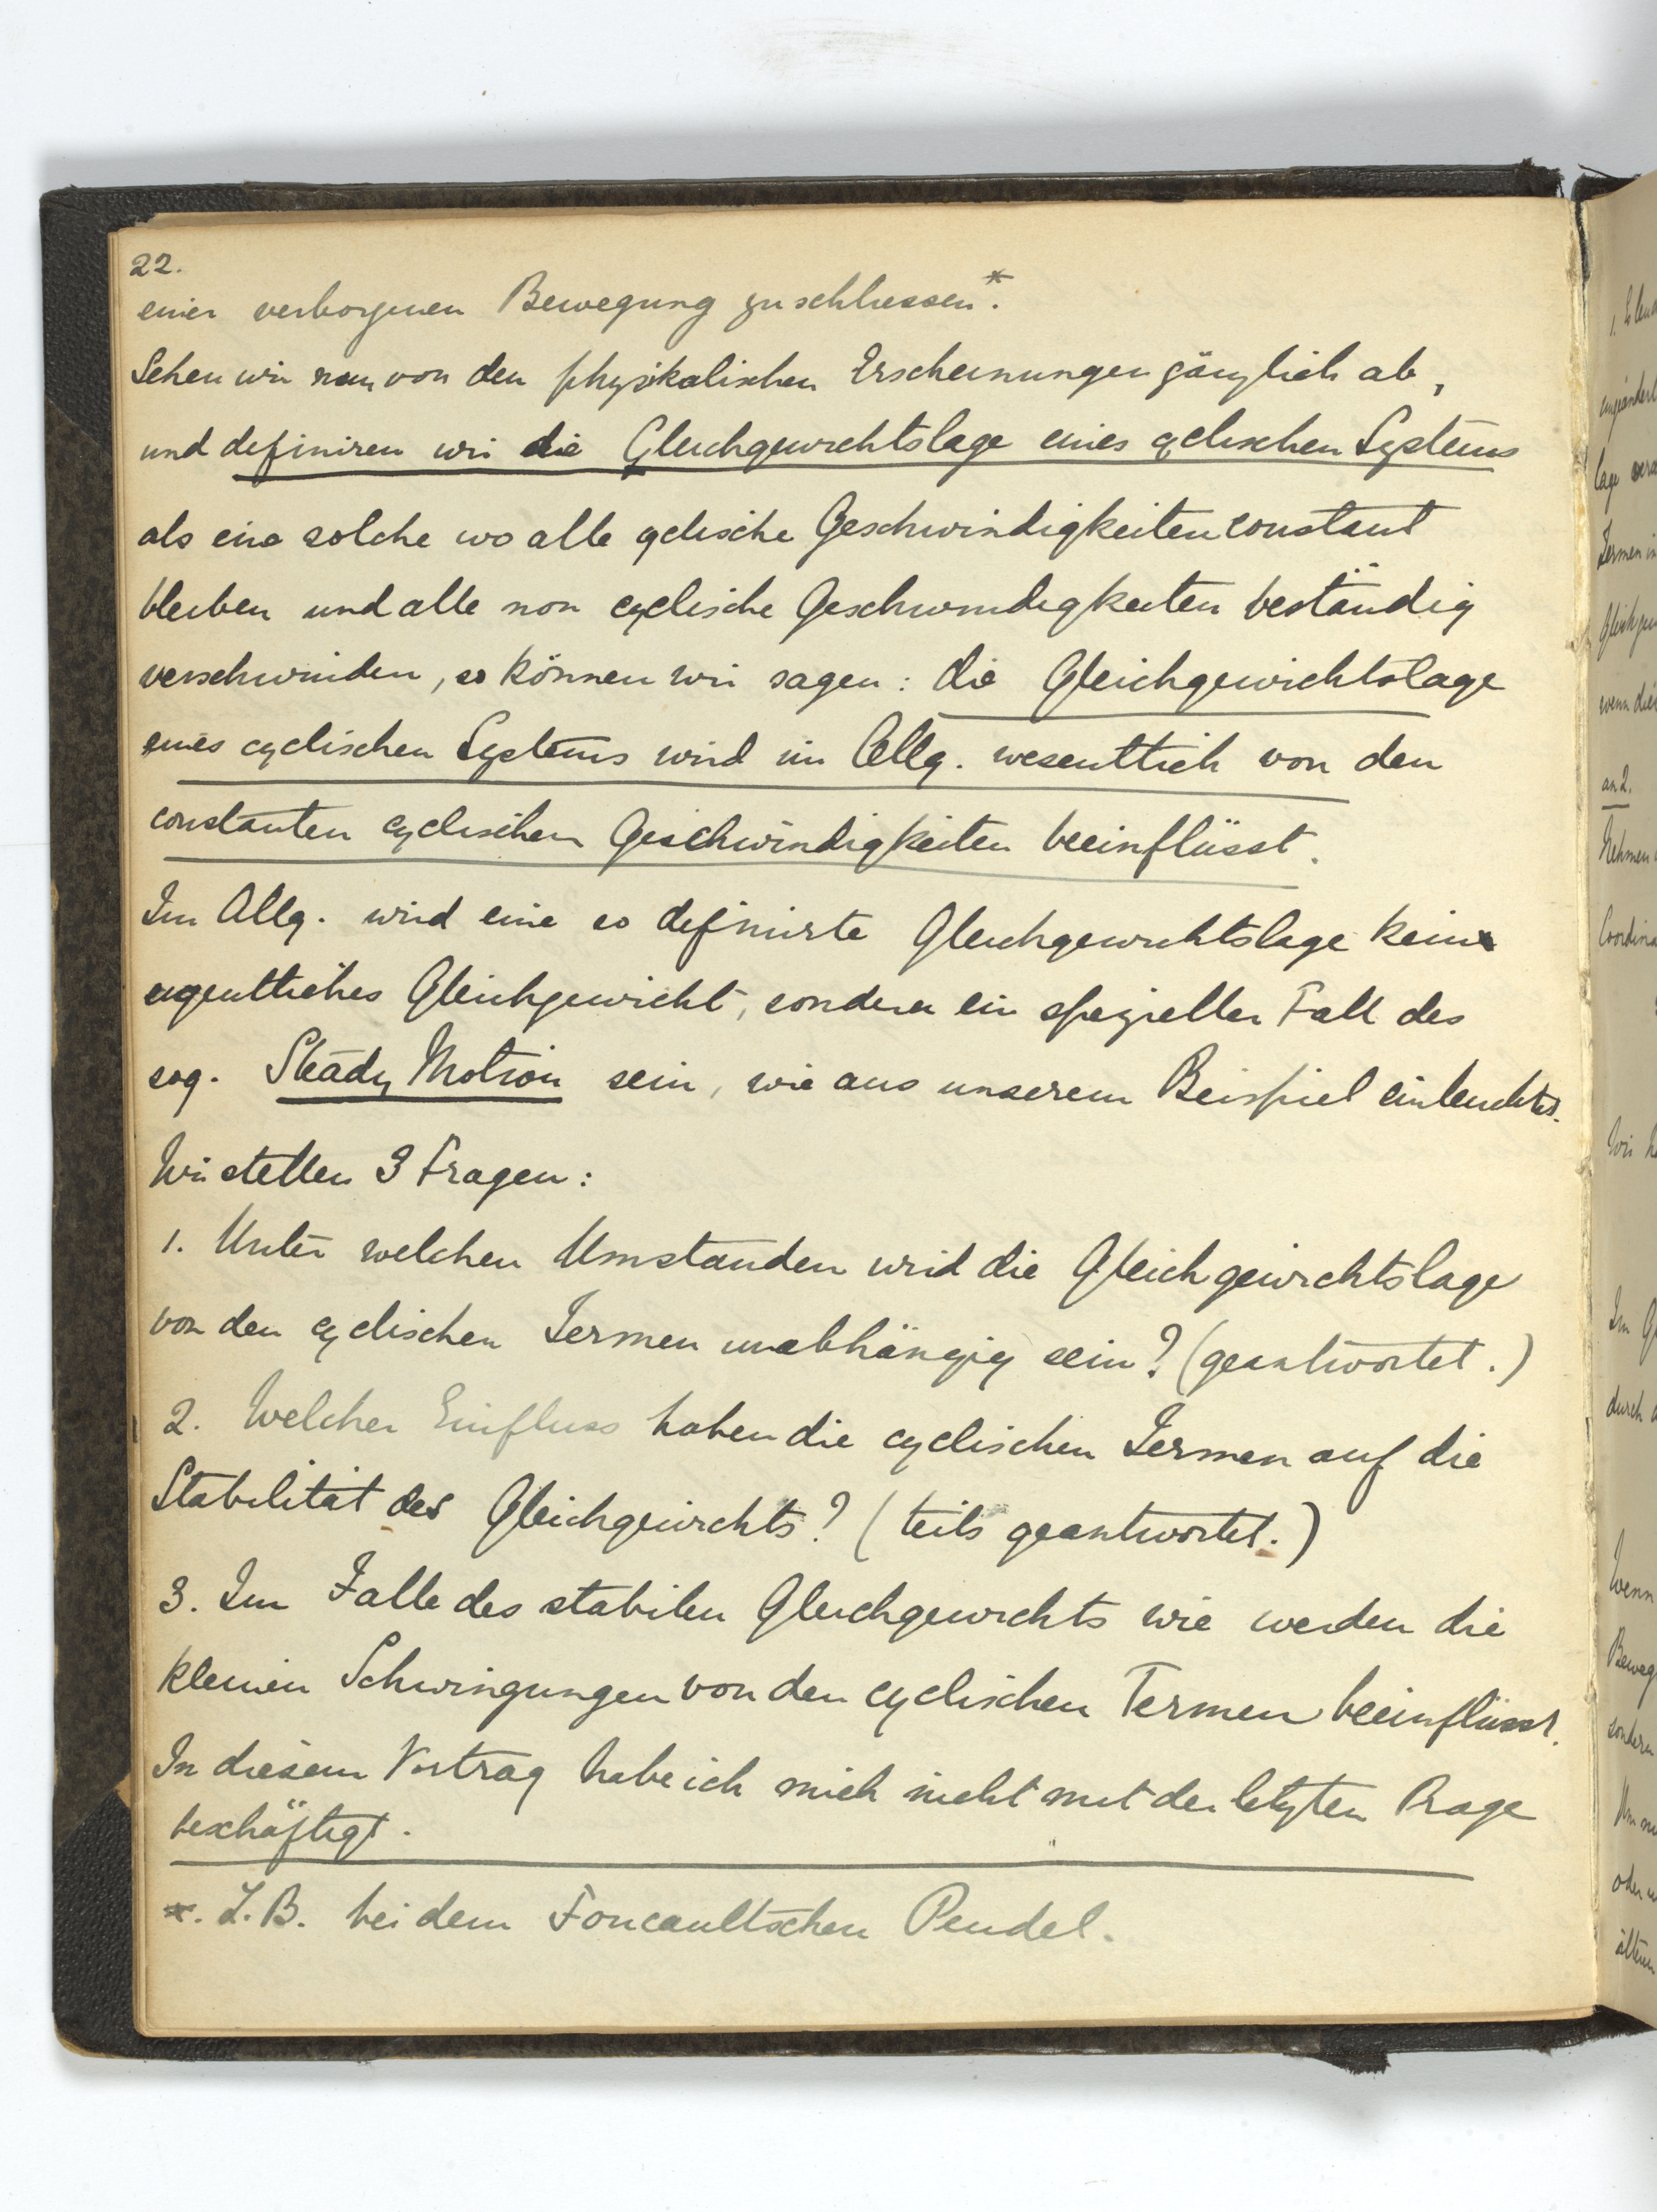 22.
einer verborgenen Bewegung zu schliessen*.
Sehen wir nun von den physikalischen Erscheinungen gänzlich ab,
und definiren wir die Gleichgewichtslage eines cyclischen Systems
als eine solche wo alle cyclische Geschwindigkeiten constant
bleiben und alle non cyclische Geschwindigkeiten beständig
verschwinden, so können wir sagen: die Gleichgewichtslage
eines cyclischen Systems wird im Allg. wesentlich von den
constanten cyclischen Geschwindigkeiten beeinflüsst.
Im Allg. wird eine so definirte Gleichgewichtslage kein
eigentliches Gleichgewicht, sondern ein spezieller Fall des
sog. Steady Motion sein, wie aus unserem Beispiel einleuchtet.
Wir stellen 3 Fragen:
1. Unter welchen Umstanden wird die Gleichgewichtslage
von den cyclischen Termen unabhängig sein? (geantwortet.)
2. Welchen Einfluss haben die cyclischen Termen auf die
Stabilität des Gleichgewichts? (teils geantwortet.)
3. Im Falle des stabilen Gleichgewichts wie werden die
kleinen Schwingungen von den cyclischen Termen beeinflüsst.
In diesem Vortrag habe ich mich nicht mit der letzten Frage
beschäftigt.
*. Z.B. bei dem Foucaultschen Pendel.
an 2.
Nehmen
wenn
durch
Wenn